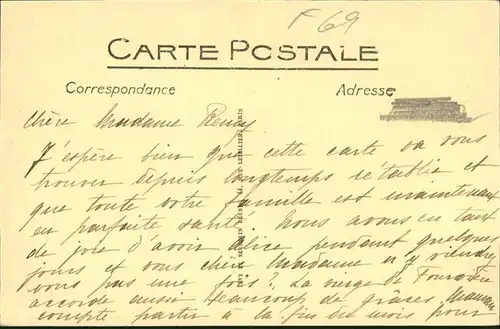 F 69
CARTE POSTALE
Correspondance
Adresse
Chère Madame Renoy
J'espère bien que cette carte va vous
trouver depuis longtemps rétablie et
que toute votre famille est maintenant
en parfaite santé. Nous avons eu tant
de joie d'avoir alice pendant quelques
jours et vous chère Madame n'y viendrez
vous pas une fois? La vierge de Fourvière
accorde aussi beaucoup de grâces. Maman
compte partir à la fin du mois pour